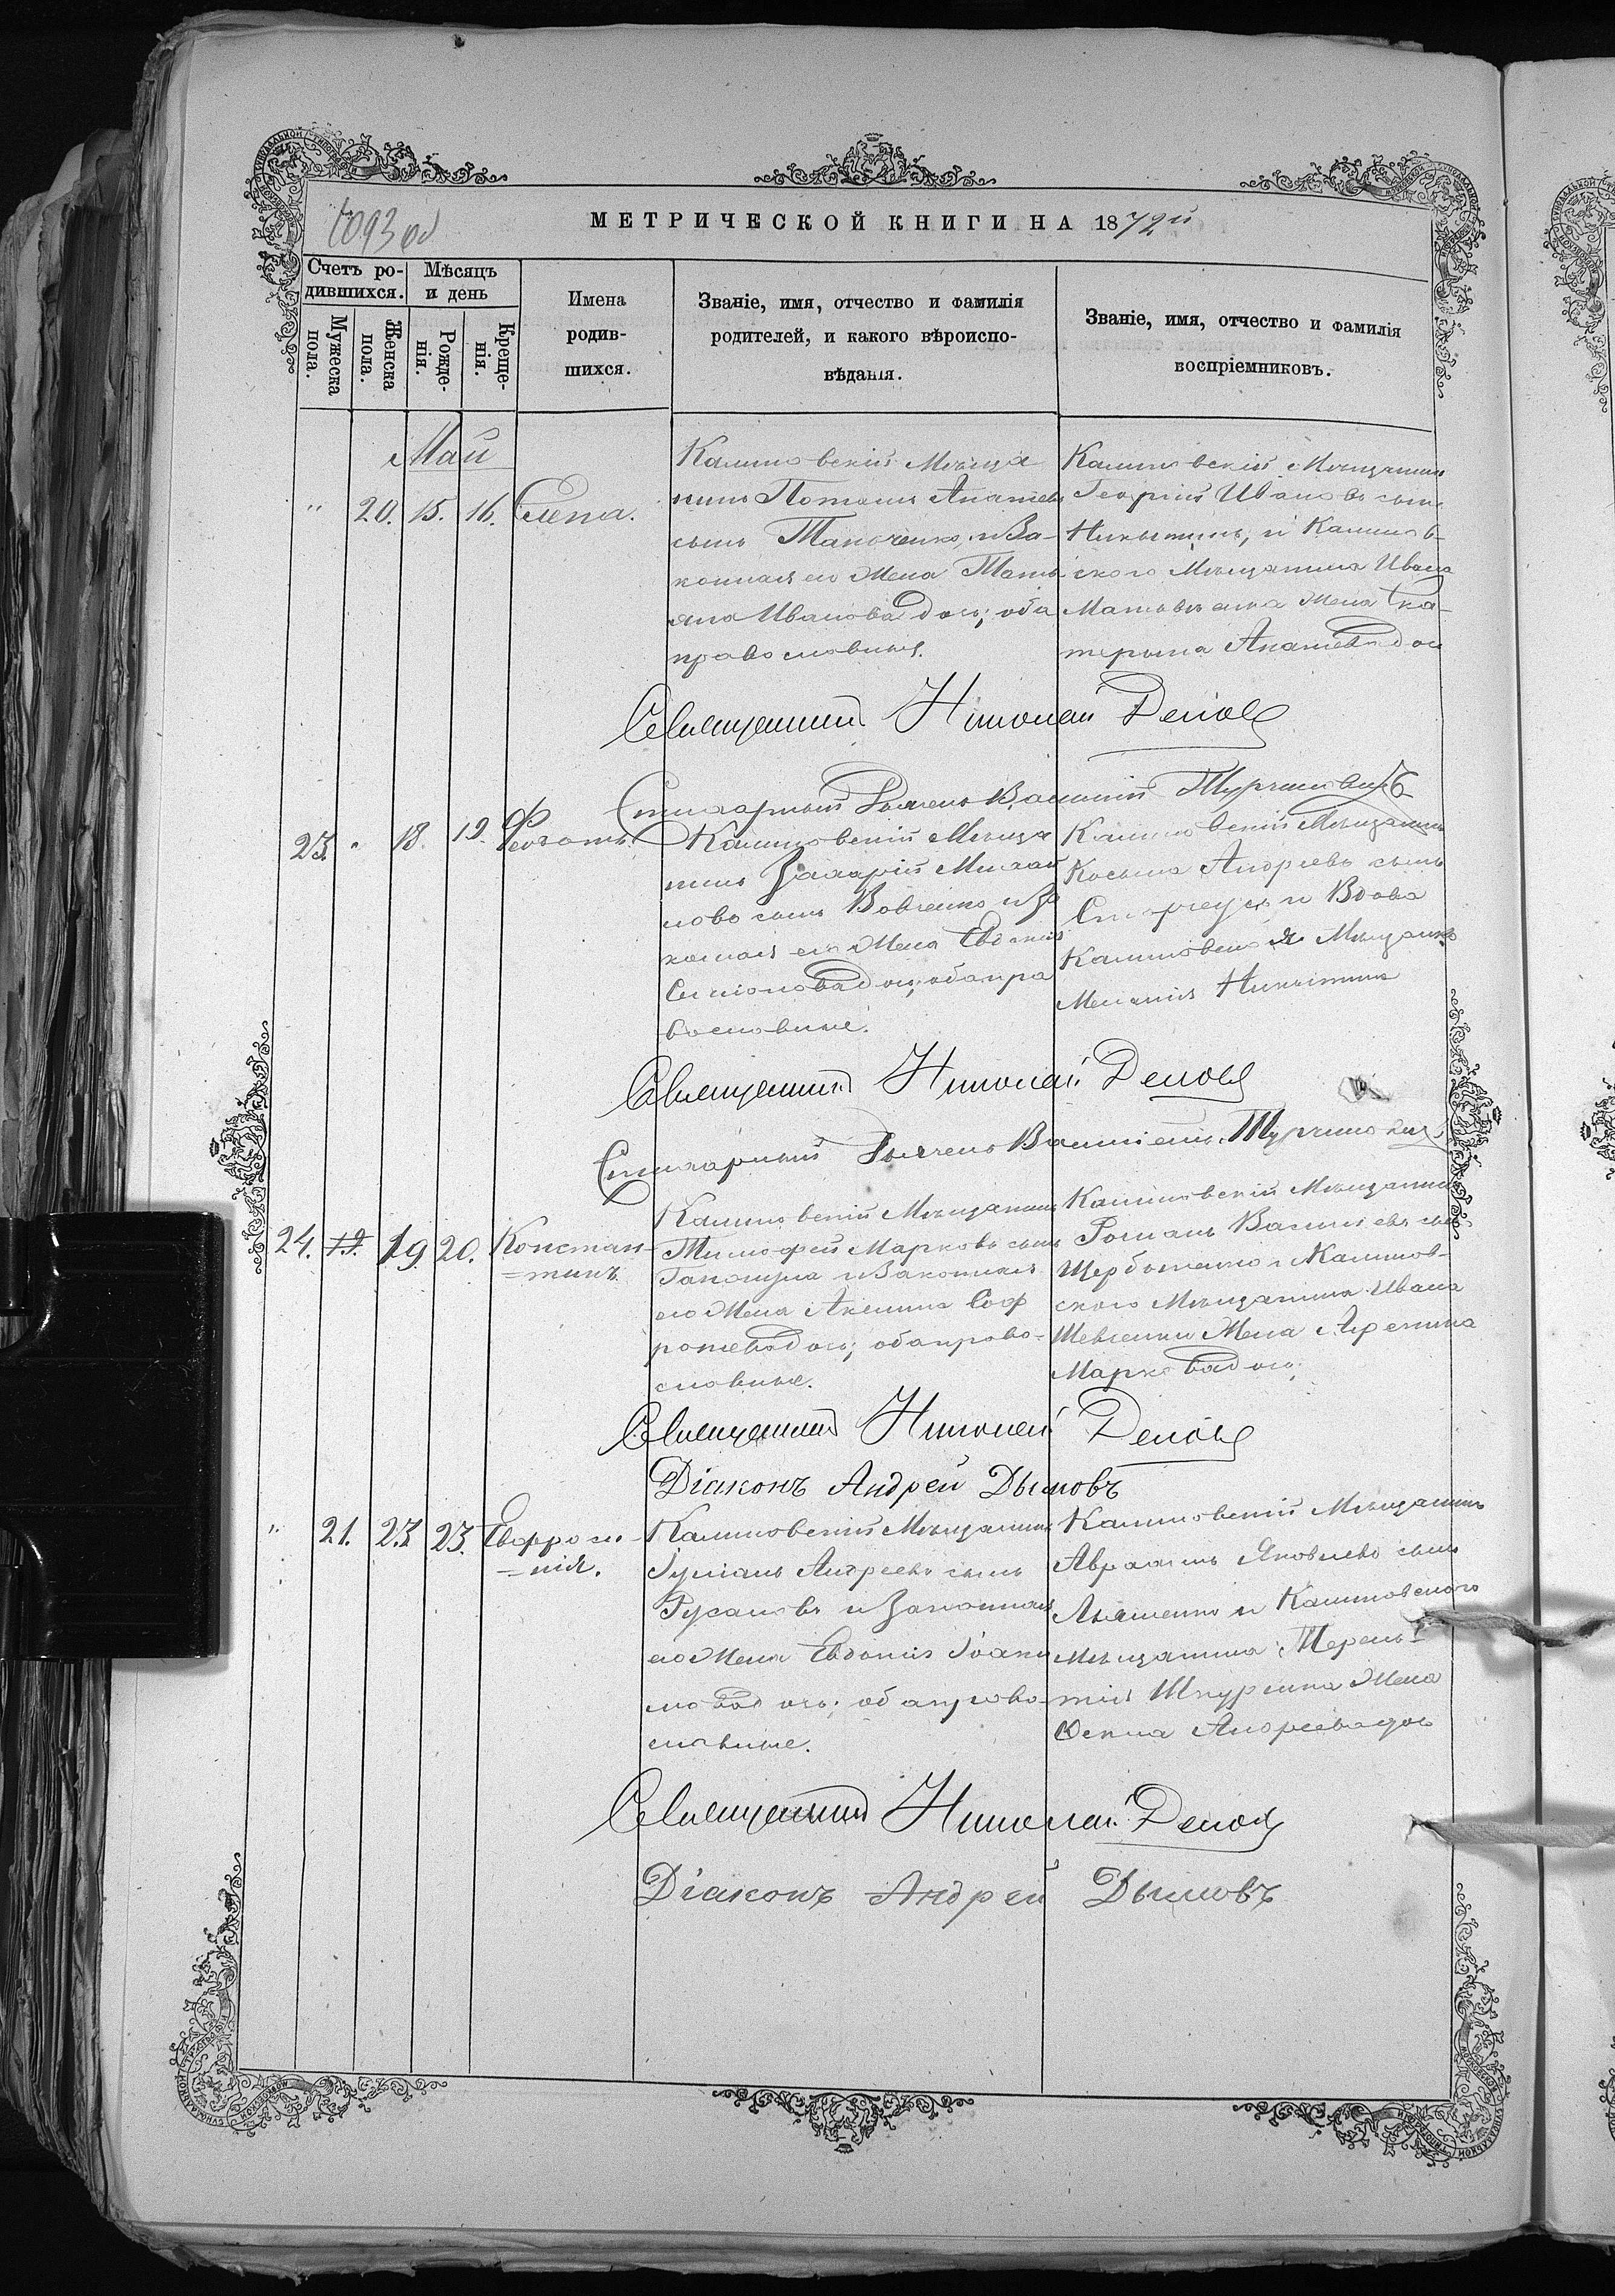 1093 об
МЕТРИЧЕСКОЙ КНИГИ НА 1872й
Счетъ ро-
дившихся.
Мѣсяцъ
и день
Мужеска
пола.
Женска
пола.
Рожде-
нія.
Креще-
нія.
Имена
родив-
шихся.
Званіе, имя, отчество и фамилія
родителей, и какого вѣроиспо-
вѣданія.
Званіе, имя, отчество и фамилія
воспріемниковъ.
Май
" 20. 15. 16. Елена.
Калиновскій Мѣща
нинъ
сынъ и За-
конная его Жена Тать
яна Иванова дочь; оба
православныя.
Калиновскій Мѣщанинъ
Георгій Ивановъ сынъ
Никитинъ, и Калинов-
ского Мѣщанина Ивана
Жена Ека-
терина дочь
Священникъ Николай
Стихарный Дьячекъ Василій
23. " 18. 19. Феодотъ.
Калиновскій Мѣща
нинъ Захарій Михай
ловъ сынъ Вовченко и За
конная его Жена Евдокія
Симонова дочь; оба пра
вославные.
Калиновскій Мѣщанинъ
Косьма Андреевъ сынъ
и Вдова
Калиновская Мѣщанка
Меланія Никитина
Священникъ Николай
Стихарный Дьячекъ Василій
24. 19. 20. Констан-
=тинъ
Калиновскій Мѣщанинъ
Тимофей Марковъ сынъ
Гапонула и Законная
его Жена Акилина Соф
роніева дочь; оба право-
славные.
Калиновскій Мѣщанинъ
Романъ Васильевъ сынъ
Щербатенко и Калинов-
ского Мѣщанина Ивана
Шевченки Жена
Маркова дочь;
Священникъ Николай
Діаконъ Андрей Дымовъ
" 21. 23. Евфроси-
=нія.
Калиновскій Мѣщанинъ
Іуліанъ Андреевъ сынъ
Русановъ и Законная
его Жена Евдокія Іоаки
мова дочь; оба право-
славные.
Калиновскій Мѣщанинъ
Авраамъ Яковлевъ сынъ
Ляшенко и Калиновского
мѣщанина Терень-
тія Шкуренка Жена
Андреева дочь
Священникъ Николай
Діаконъ Андрей Дымовъ